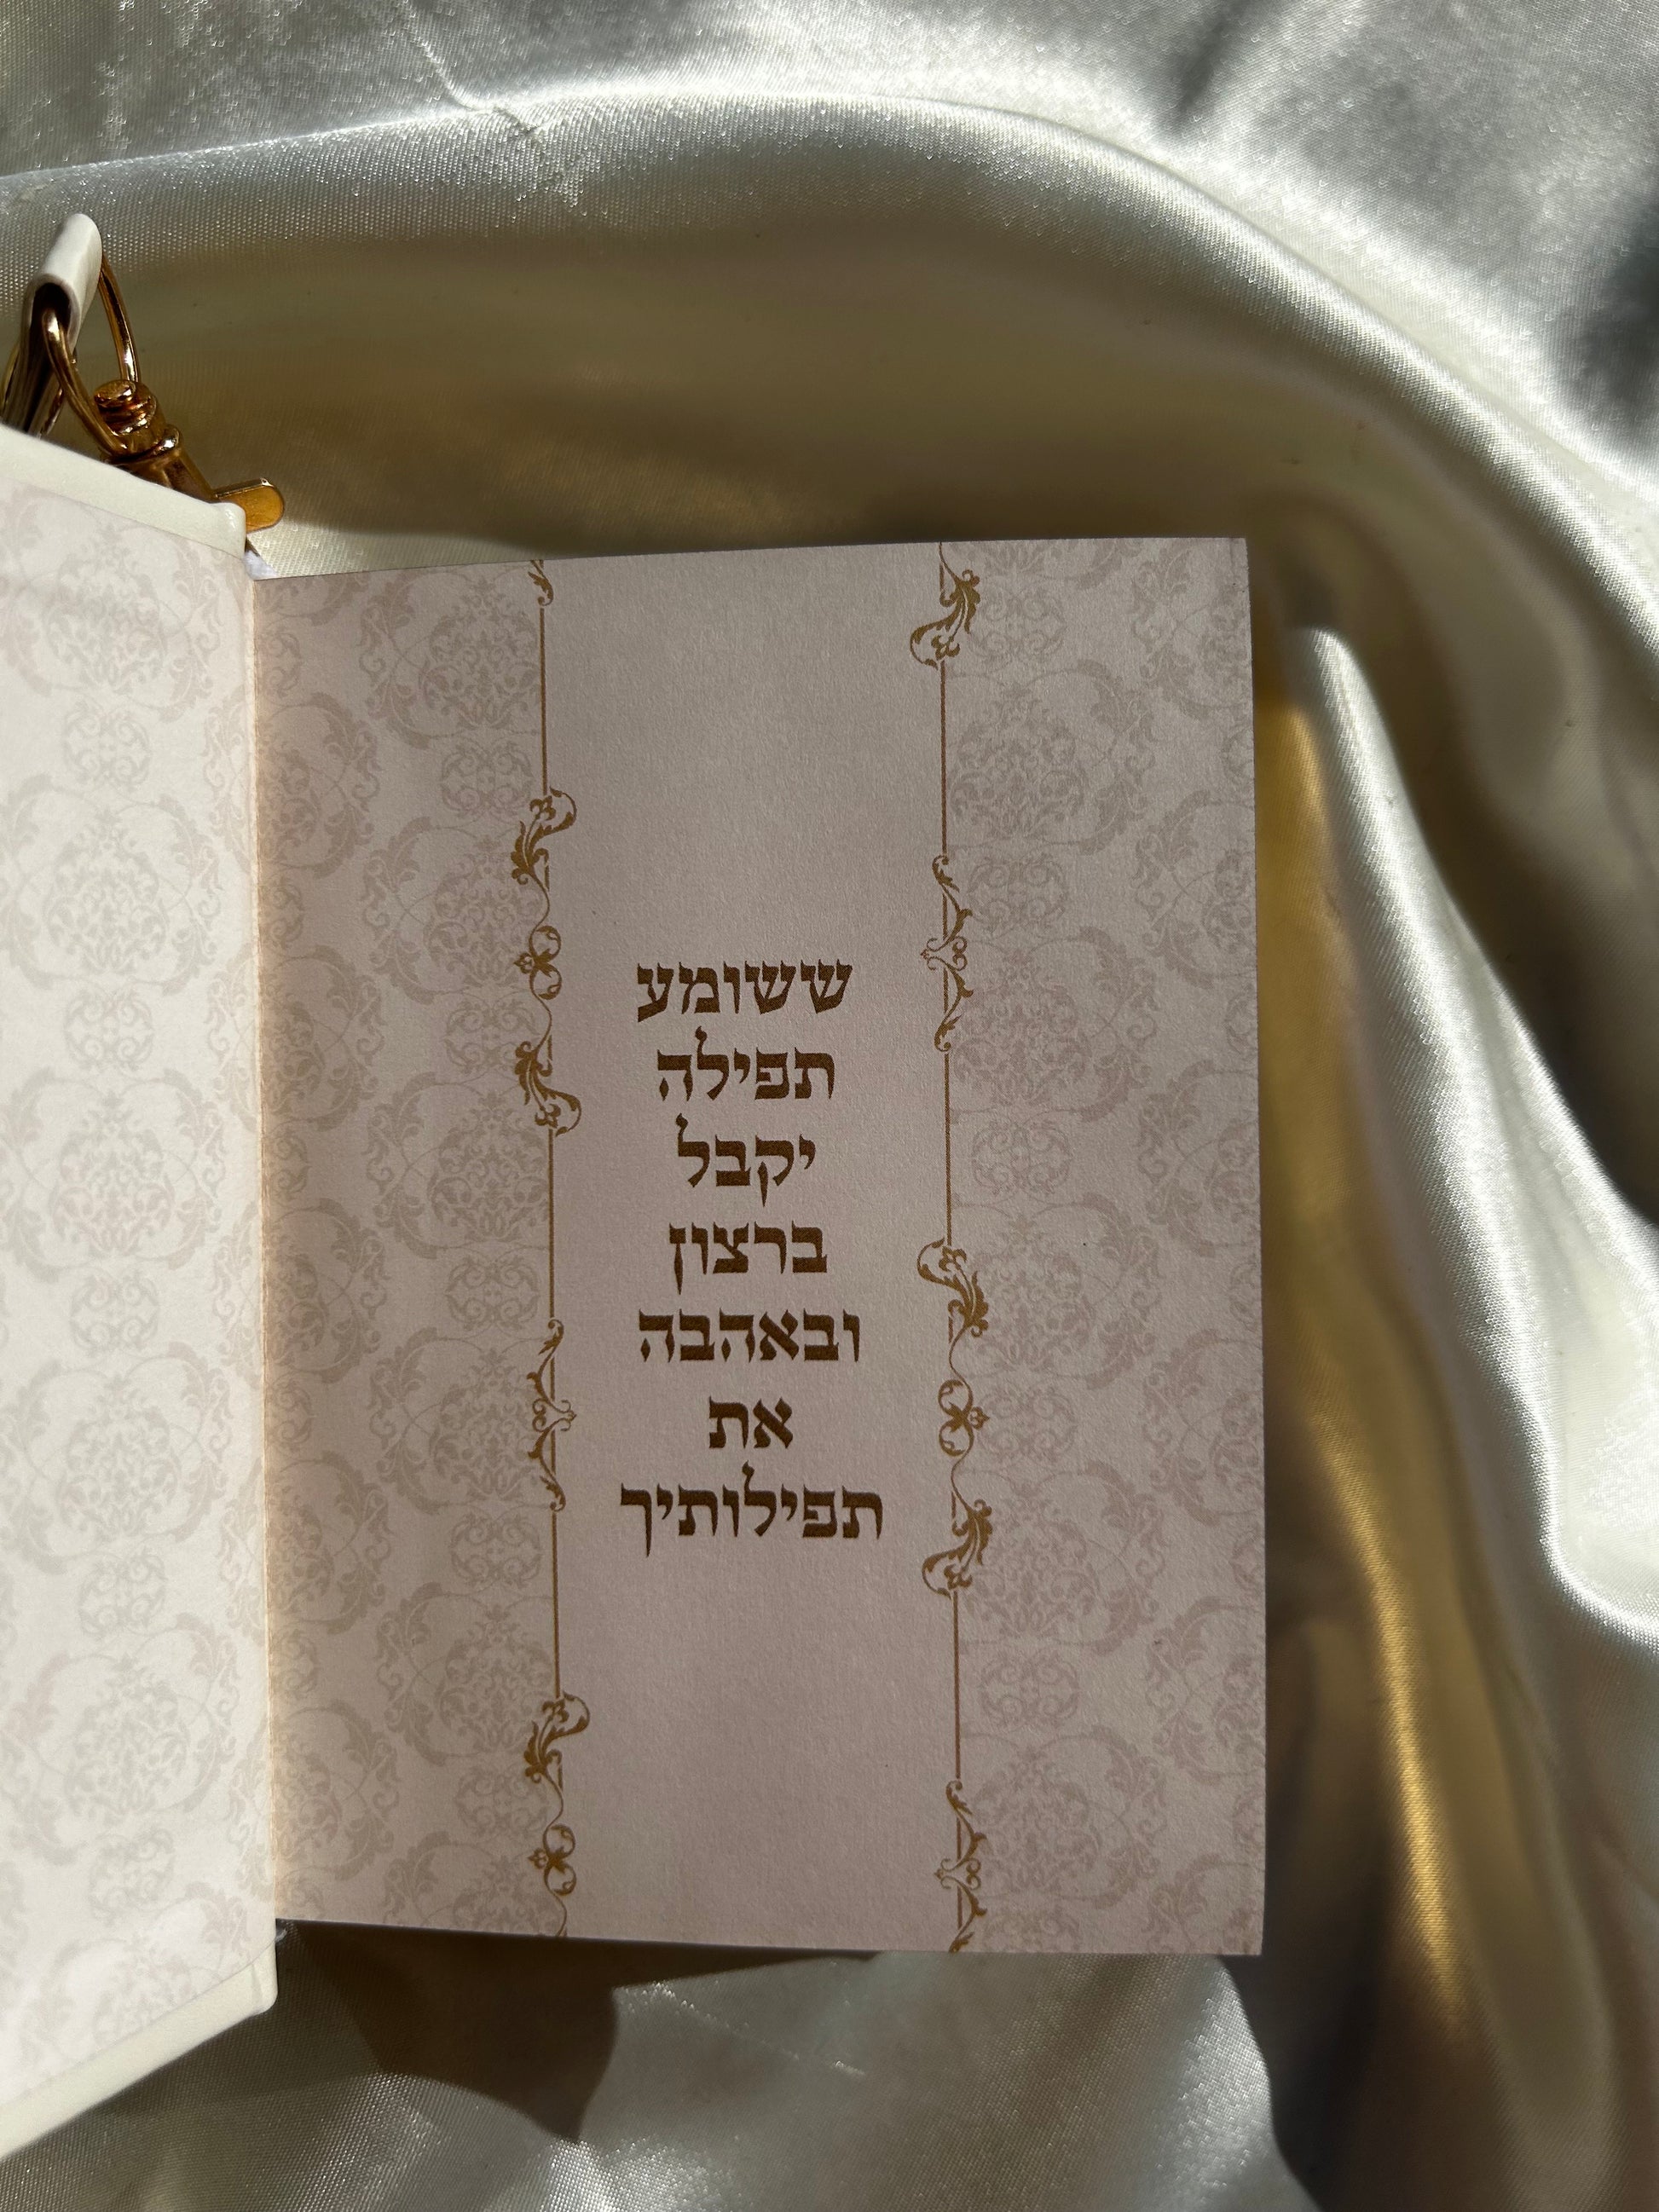 ששומע
תפילה
יקבל
ברצון
ובאהבה
את
תפילותיך